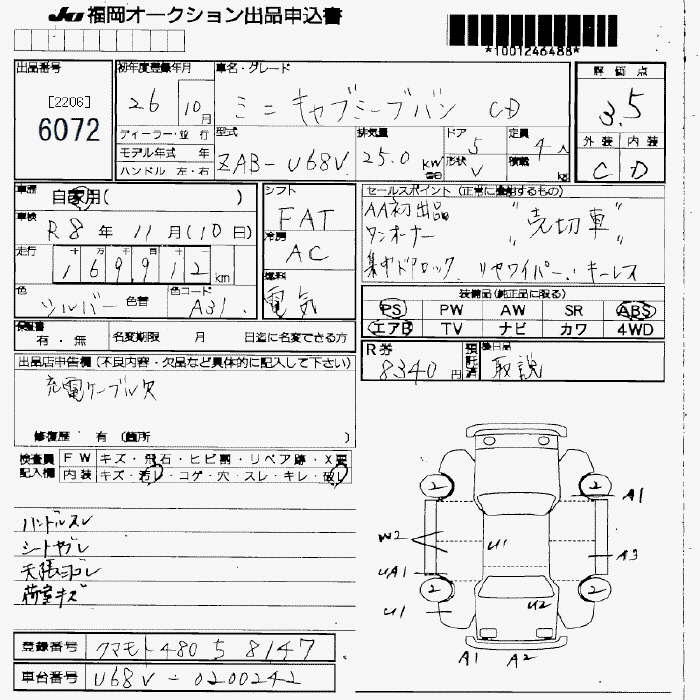 JU 福岡オークション出品申込書
*1001246488*
出品番号
[2206]
6072
初年度登録年月
26 10月
車名・グレード
ミニキャブミーブバン CD
評価点
3.5
ディーラー・並行
モデル年式 年
ハンドル 左・右
型式
ZAB-U68V
排気量
25.0 KW
ドア 5
形状 V
定員 4人
積載 kg
外装 内装
C D
車歴
自家用( )
車検
R8年 11月(10日)
走行
169912 km
色
シルバー
色替
色コード
A31
シフト
FAT
冷房
AC
燃料
電気
セールスポイント(正常に機能するもの)
AA初出品
ワンオーナー
"売切車"
集中ドアロック. リヤワイパー. キーレス
装備品(純正品に限る)
PS PW AW SR ABS
エアB TV ナビ カワ 4WD
保証書
有・無
名変期限 月 日迄に名変できる方
R券
8340円
預託済
後日品
取説
出品店申告欄(不良内容・欠品など具体的に記入して下さい)
充電ケーブル欠
修復歴 有(箇所 )
検査員記入欄
FW キズ・飛石・ヒビ割・リペア跡・X要
内装 キズ・汚レ・コゲ・穴・スレ・キレ・破レ
ハンドルスレ
シートヤブレ
天張ヨゴレ
荷室キズ
2 2
A1
W2
U1
A3
UA1
2 2
U1
U2
A1 A2
登録番号 クマモト 480 う 8147
車台番号 U68V-0200242